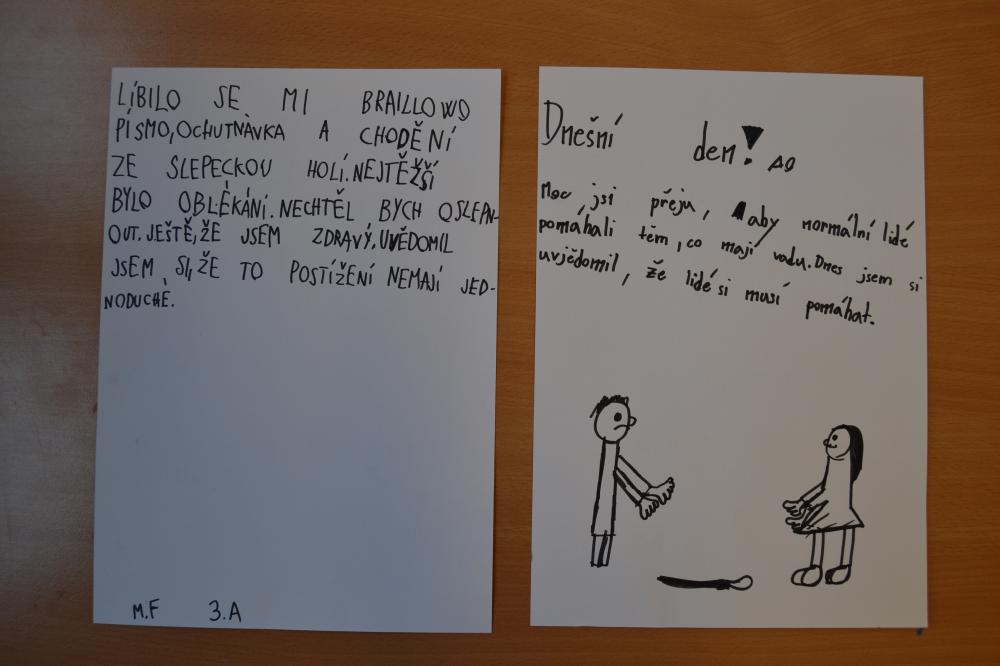 LÍBILO SE MI BRAILLOWO
PÍSMO, OCHUTNÀVKA A CHODĚNÍ
ZE SLEPECKOU HOLÍ. NEJTĚŽŠÍ
BYLO OBLÉKÁNÍ. NECHTĚL BYCH OSLEPN-
OUT. JEŠTĚ, ŽE JSEM ZDRAVÝ, UVĚDOMIL
JSEM, SI, ŽE TO POSTÍŽENÍ NEMAJÍ JED-
NODUCHÉ.
M.F 3.A
Dnešní den!
Moc, jsi přeju, aby normální lidé
pomáhali těm, co mají vadu. Dnes jsem si
uvjědomil, že lidé si musí pomáhat.